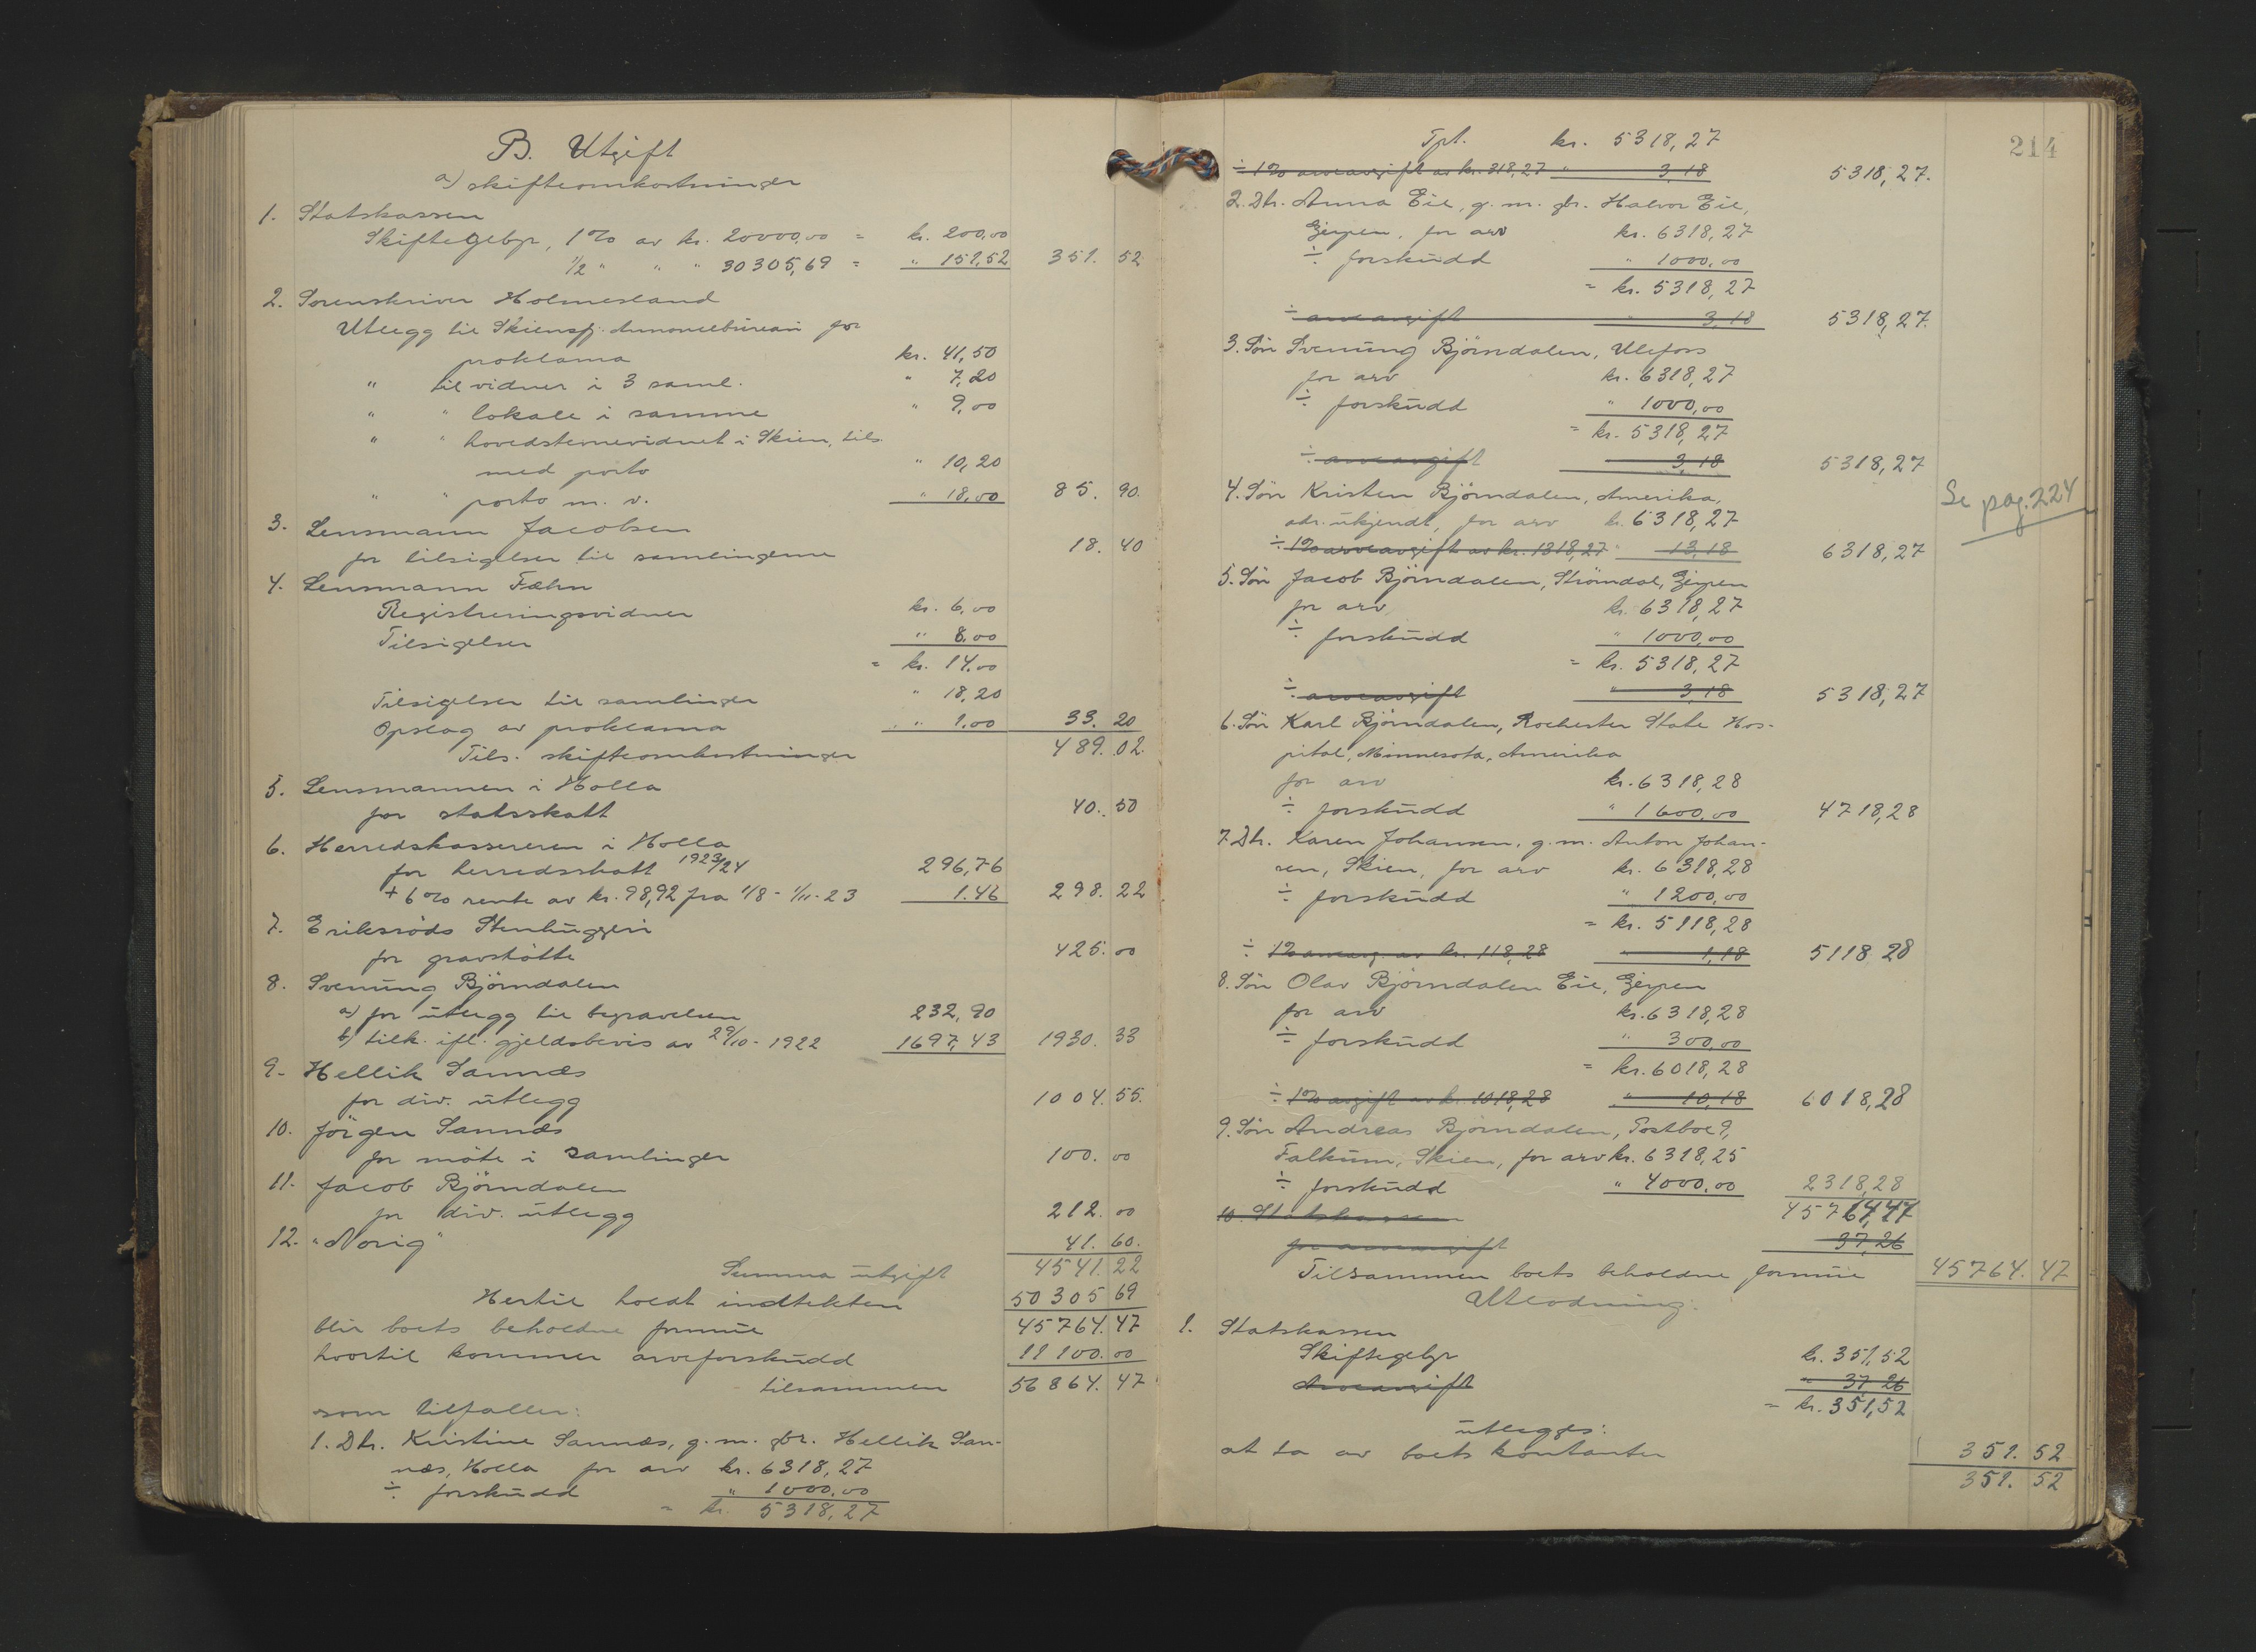 B. Utgift
a) skifteomkostninger
1. Statskassen
Skiftegebyr, 1% av kr. 20000,00 = kr. 200,00
1/2 " " " 30305,69 = " 151,52 351. 52
2. Sorenskriver Holmesland
Utlegg til Skiensfj. Annoncebureau for
proklama kr. 41,50
" til vidner i 3 saml. " 7,20
" " lokale i samme " 9,00
" " hovedstevnevidnet i Skien, tils.
med porto " 10,20
" " porto m. v. " 18,00 85. 90.
3. Lensmann Jacobsen
for tilsigelser til samlingerne 18. 40
4. Lensmann Fæhn
Registreringsvidner kr. 6,00
Tilsigelser " 8,00
= kr. 14,00
Tilsigelser til samlinger " 18,20
Opslag av proklama " 1,00 33. 20
Tils. skifteomkostninger 489. 02.
5. Lensmannen i Holla
for statsskatt 40. 50
6. Herredskassereren i Holla
for herredsskatt 1923/24 296,76
+ 6% rente av kr. 98,92 fra 1/8 - 1/11-23 1.46 298. 22
7. Eriksröds Stenhuggeri
for gravstötte 425. 00
8. Svenung Björndalen
a) for utlegg til begravelsen 232,90
b) tilk. ifl. gjeldsbevis av 29/10 - 1922 1697,43 1930. 33
9. Hellik Sannes
for div. utlegg 1004. 55.
10. Jörgen Sannes
for møte i samlinger 100. 00
11. Jacob Björndalen
for div. utlegg 212. 00
12. "Norig" 41. 60.
Summa utgift 4541. 22
Hertil holdt indtekten 50305 69
blir boets beholdne formue 45764. 47
hvortil kommer arveforskudd 11100. 00
tilsammen 56864. 47
som tilfaller:
1. Dtr. Kristine Sannes, g. m. gbr. Hellik San-
nes, Holla for arv kr. 6318,27
÷ forskudd " 1000,00
= kr. 5318,27
214
Tpt. kr. 5318,27
÷ 1% arveavgift av kr. 318,27 " 3,18 5318,27.
2. Dtr. Anna Eie, g. m. gbr. Halvor Eie,
Gjerpen, for arv kr. 6318,27
÷ forskudd " 1000,00
= kr. 5318,27
÷ arveavgift " 3,18 5318,27.
3. Søn Svenung Björndalen, Ulefoss
for arv kr. 6318,27
÷ forskudd " 1000,00
= kr. 5318,27
÷ arveavgift 3,18 5318,27
4. Søn Kristen Björndalen, Amerika,
adr. ukjendt, for arv kr. 6318,27
Se pag. 224
÷ 1% arveavgift av kr. 1318,27 " 13,18 6318,27
5. Søn Jacob Björndalen, Strömdal, Gjerpen
for arv kr. 6318,27
÷ forskudd " 1000,00
= kr. 5318,27
÷ arveavgift " 3,18 5318,27
6. Søn Karl Björndalen, Rochester State Hos-
pital, Minnesota, Amerika
for arv kr. 6318,28
÷ forskudd " 1600,00 4718,28
7. Dtr. Karen Johansen, g. m. Anton Johan-
sen, Skien, for arv kr. 6318,28
÷ forskudd " 1200,00
= kr. 5118,28
÷ 1% arveavg. av kr. 118,28 " 1,18 5118 28
8. Søn Olav Björndalen Eie, Gjerpen
for arv kr. 6318,28
÷ forskudd " 300,00
= kr. 6018,28
÷ 1% avgift av kr. 1018,28 " 10,18 6018,28
9. Søn Andreas Björndalen, Postboe 9,
Falkum, Skien, for arv kr. 6318,25
÷ forskudd " 4000,00 2318,28
10. Statskassen 45764,47
for arveavgift 37,26
Tilsammen boets beholdne formue 45764. 47
Utlodning.
1. Statskassen
Skiftegebyr kr. 351,52
Arveavgift " 37,26
= kr. 351,52
utlegges:
at ta av boets kontanter 351. 52
351. 52